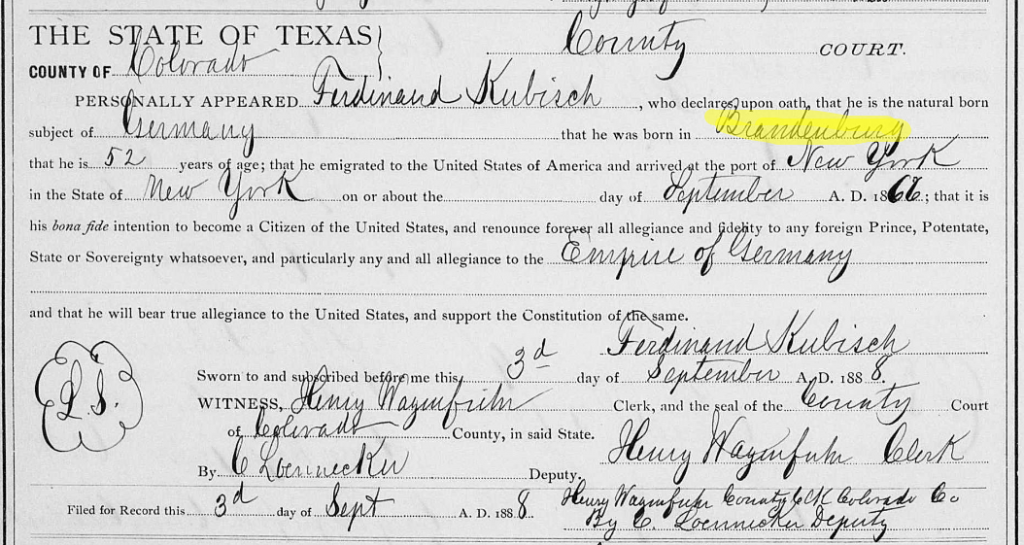 THE STATE OF TEXAS } County COURT.
COUNTY OF Colorado
PERSONALLY APPEARED Ferdinand Kubisch, who declares upon oath, that he is the natural born
subject of Germany that he was born in Brandenburg
that he is 52 years of age; that he emigrated to the United States of America and arrived at the port of New York
in the State of New York on or about the day of September A. D. 1866; that it is
his bona fide intention to become a Citizen of the United States, and renounce forever all allegiance and fidelity to any foreign Prince, Potentate,
State or Sovereignty whatsoever, and particularly any and all allegiance to the Empire of Germany
and that he will bear true allegiance to the United States, and support the Constitution of the same.
Ferdinand Kubisch
Sworn to and subscribed before me this 3d day of September A. D. 1888.
L.S.
WITNESS, Henry Wagenfuhr Clerk, and the seal of the County Court
of Colorado County, in said State.
Henry Wagenfuhr Clerk
By C Loennecker Deputy,
Filed for Record this 3d day of Sept A. D. 1888
Henry Wagenfuhr County Clk Colorado Co
By C. Loennecker Deputy